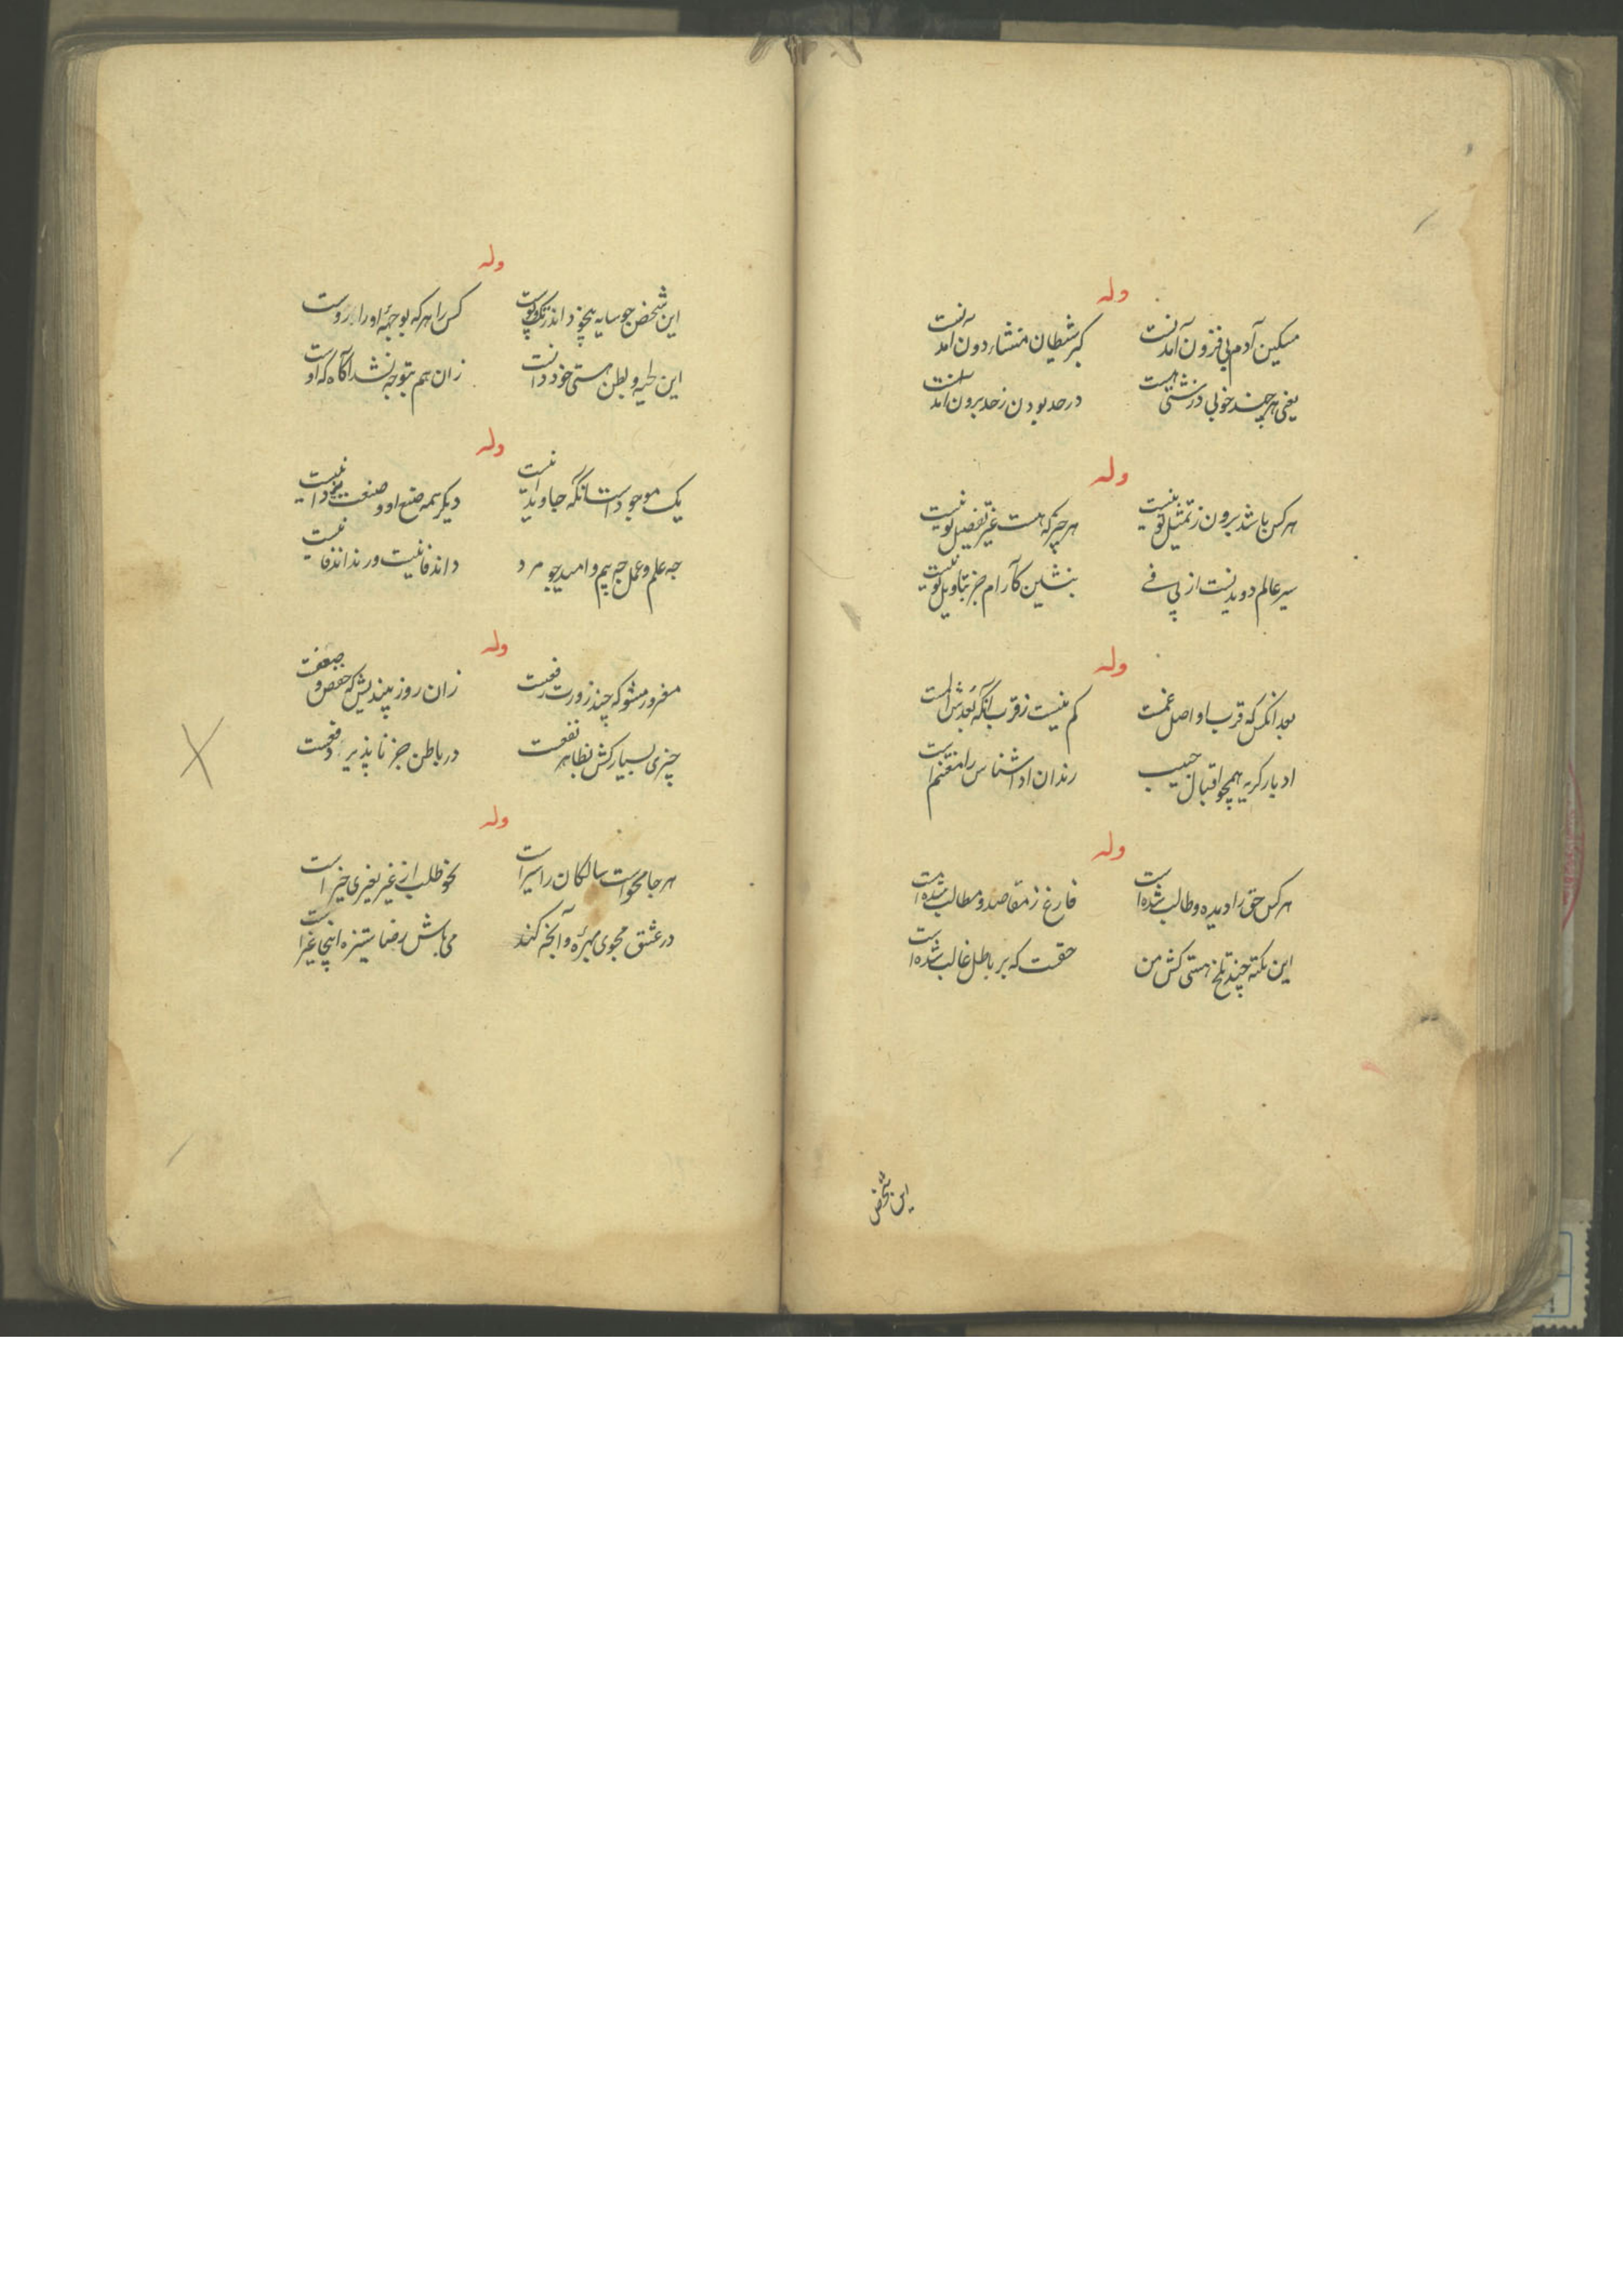 وله
مسکین آدم پی فزون آمدنست
کبر شیطان منشاء دون آمدنست
یعنی هر چند خوبی در زشتی هست
در حد بودن ز حد برون آمدنست
وله
هر کس باشد برون ز تمثیل تو نیست
هر چیز که هست غیر تفصیل تو نیست
سیر عالم دویدنست از پی فی
بنشین کارام جز بتاویل تو نیست
وله
بعد انکس که قرب او اصل غمست
کم نیست ز قرب انکه بعدش است
ادبار کریه همچو اقبال حبیب
رندان ادا شناس را مغتنم است
وله
هر کس حق را دیده و طالب شده است
فارغ ز مقاصد و مطالب شده است
این نکته چند تلخ هستی کش من
حقست که بر باطل غالب شده است
این شخص
وله
این شخص چو سایه بیخود اندر تک و پوست
کس را هر که بوجهه او را روست
این لحیه و بطن هستی خود دانست
زان هم بتوجه نشد آگاه که اوست
وله
یک موجود است انکه جاوید نیست
دیگر همه صنع او و صنعت نیست
چه علم و عمل چه بیم و امید چو مرد
داند فانیست ور نداند فانیست
وله
مغرور مشو که چند زورت رفعیت
زان روز بیندیش که خفض و ضعفت
چیزی بسیار کش بظاهر نفعست
در باطن جز نا پذیر دفعست
وله
هر جا محو است سالکان را سیر است
محو طلب از غیر بغیری خیر است
در عشق مجوی بهره و آنجه کند
می باش رضا ستیزه اینجا غیر است